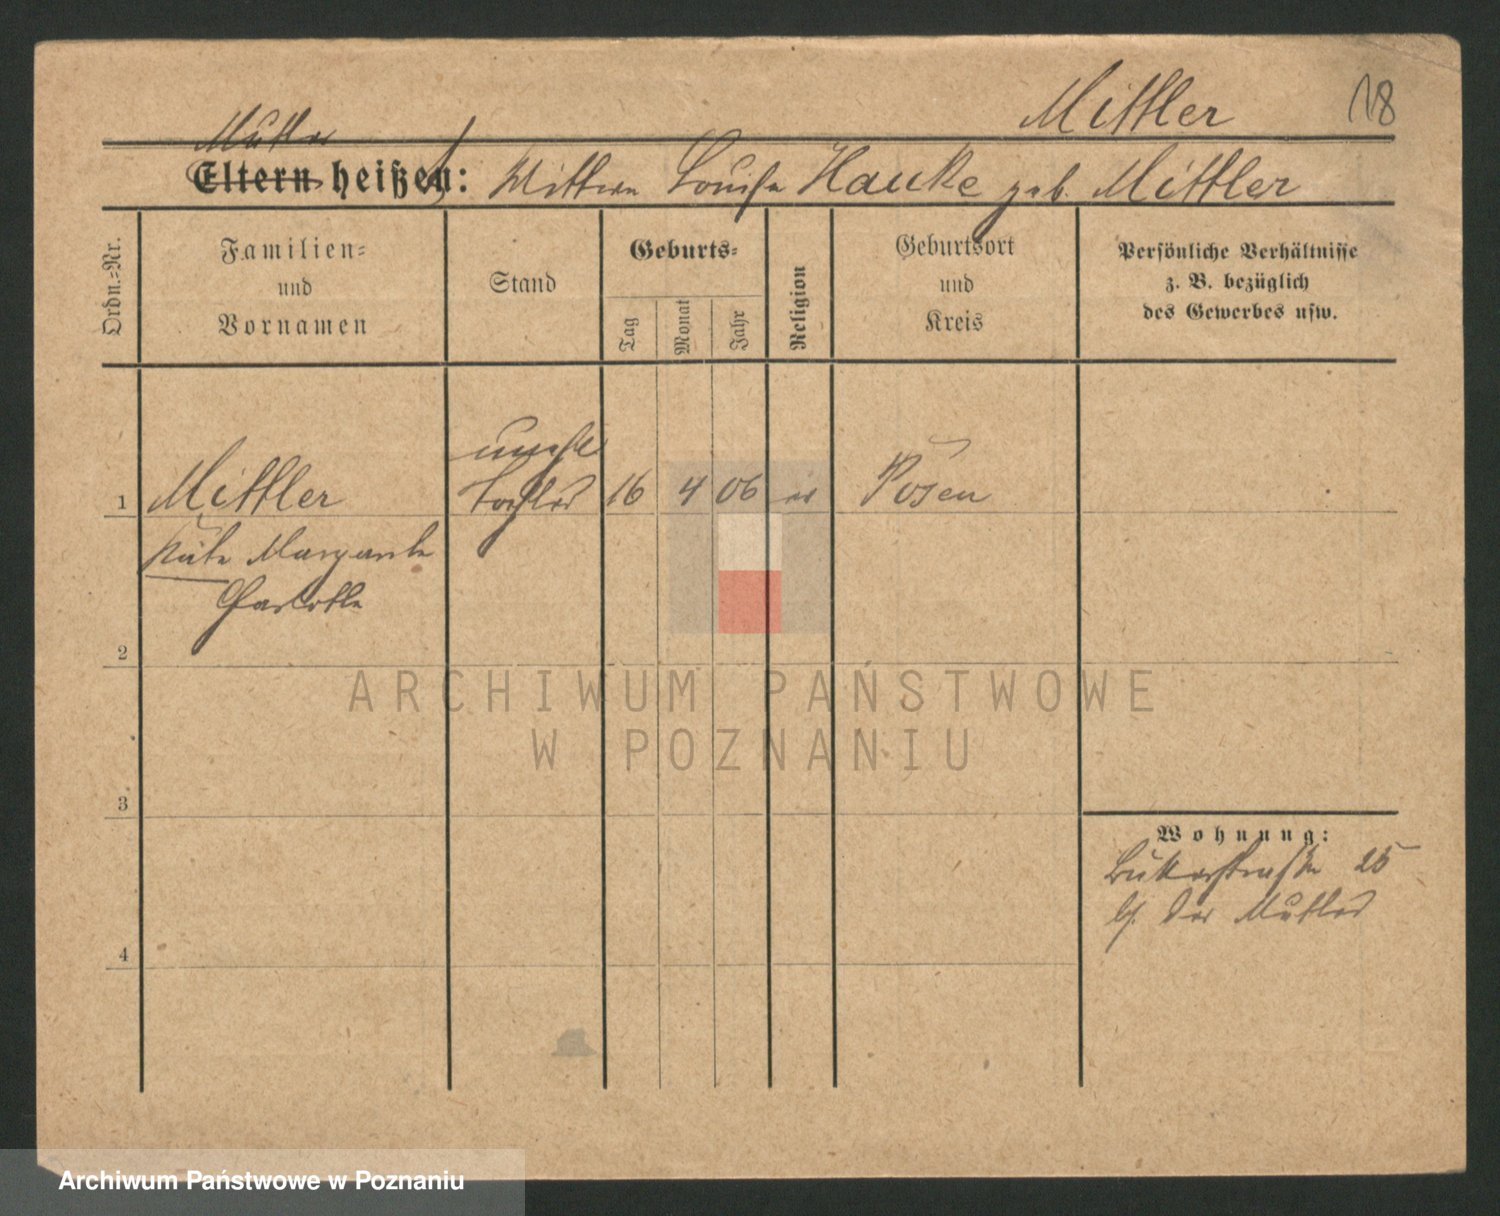 Mittler
18
Mutter
Eltern heißen: Wittwe Louise Hauke geb. Mittler
Ordn.=Nr.
Familien=
und
Vornamen
Stand
Geburts=
Tag
Monat
Jahr
Religion
Geburtsort
und
Kreis
Persönliche Verhältnisse
z. B. bezüglich
des Gewerbes usw.
unehl
1 Mittler Tochter 16 4 06 ev Posen
Käte Margarete
Charlotte
2
3
4
Wohnung:
Bukerstraße 25
bei der Mutter
ARCHIWUM PAŃSTWOWE
W POZNANIU
Archiwum Państwowe w Poznaniu